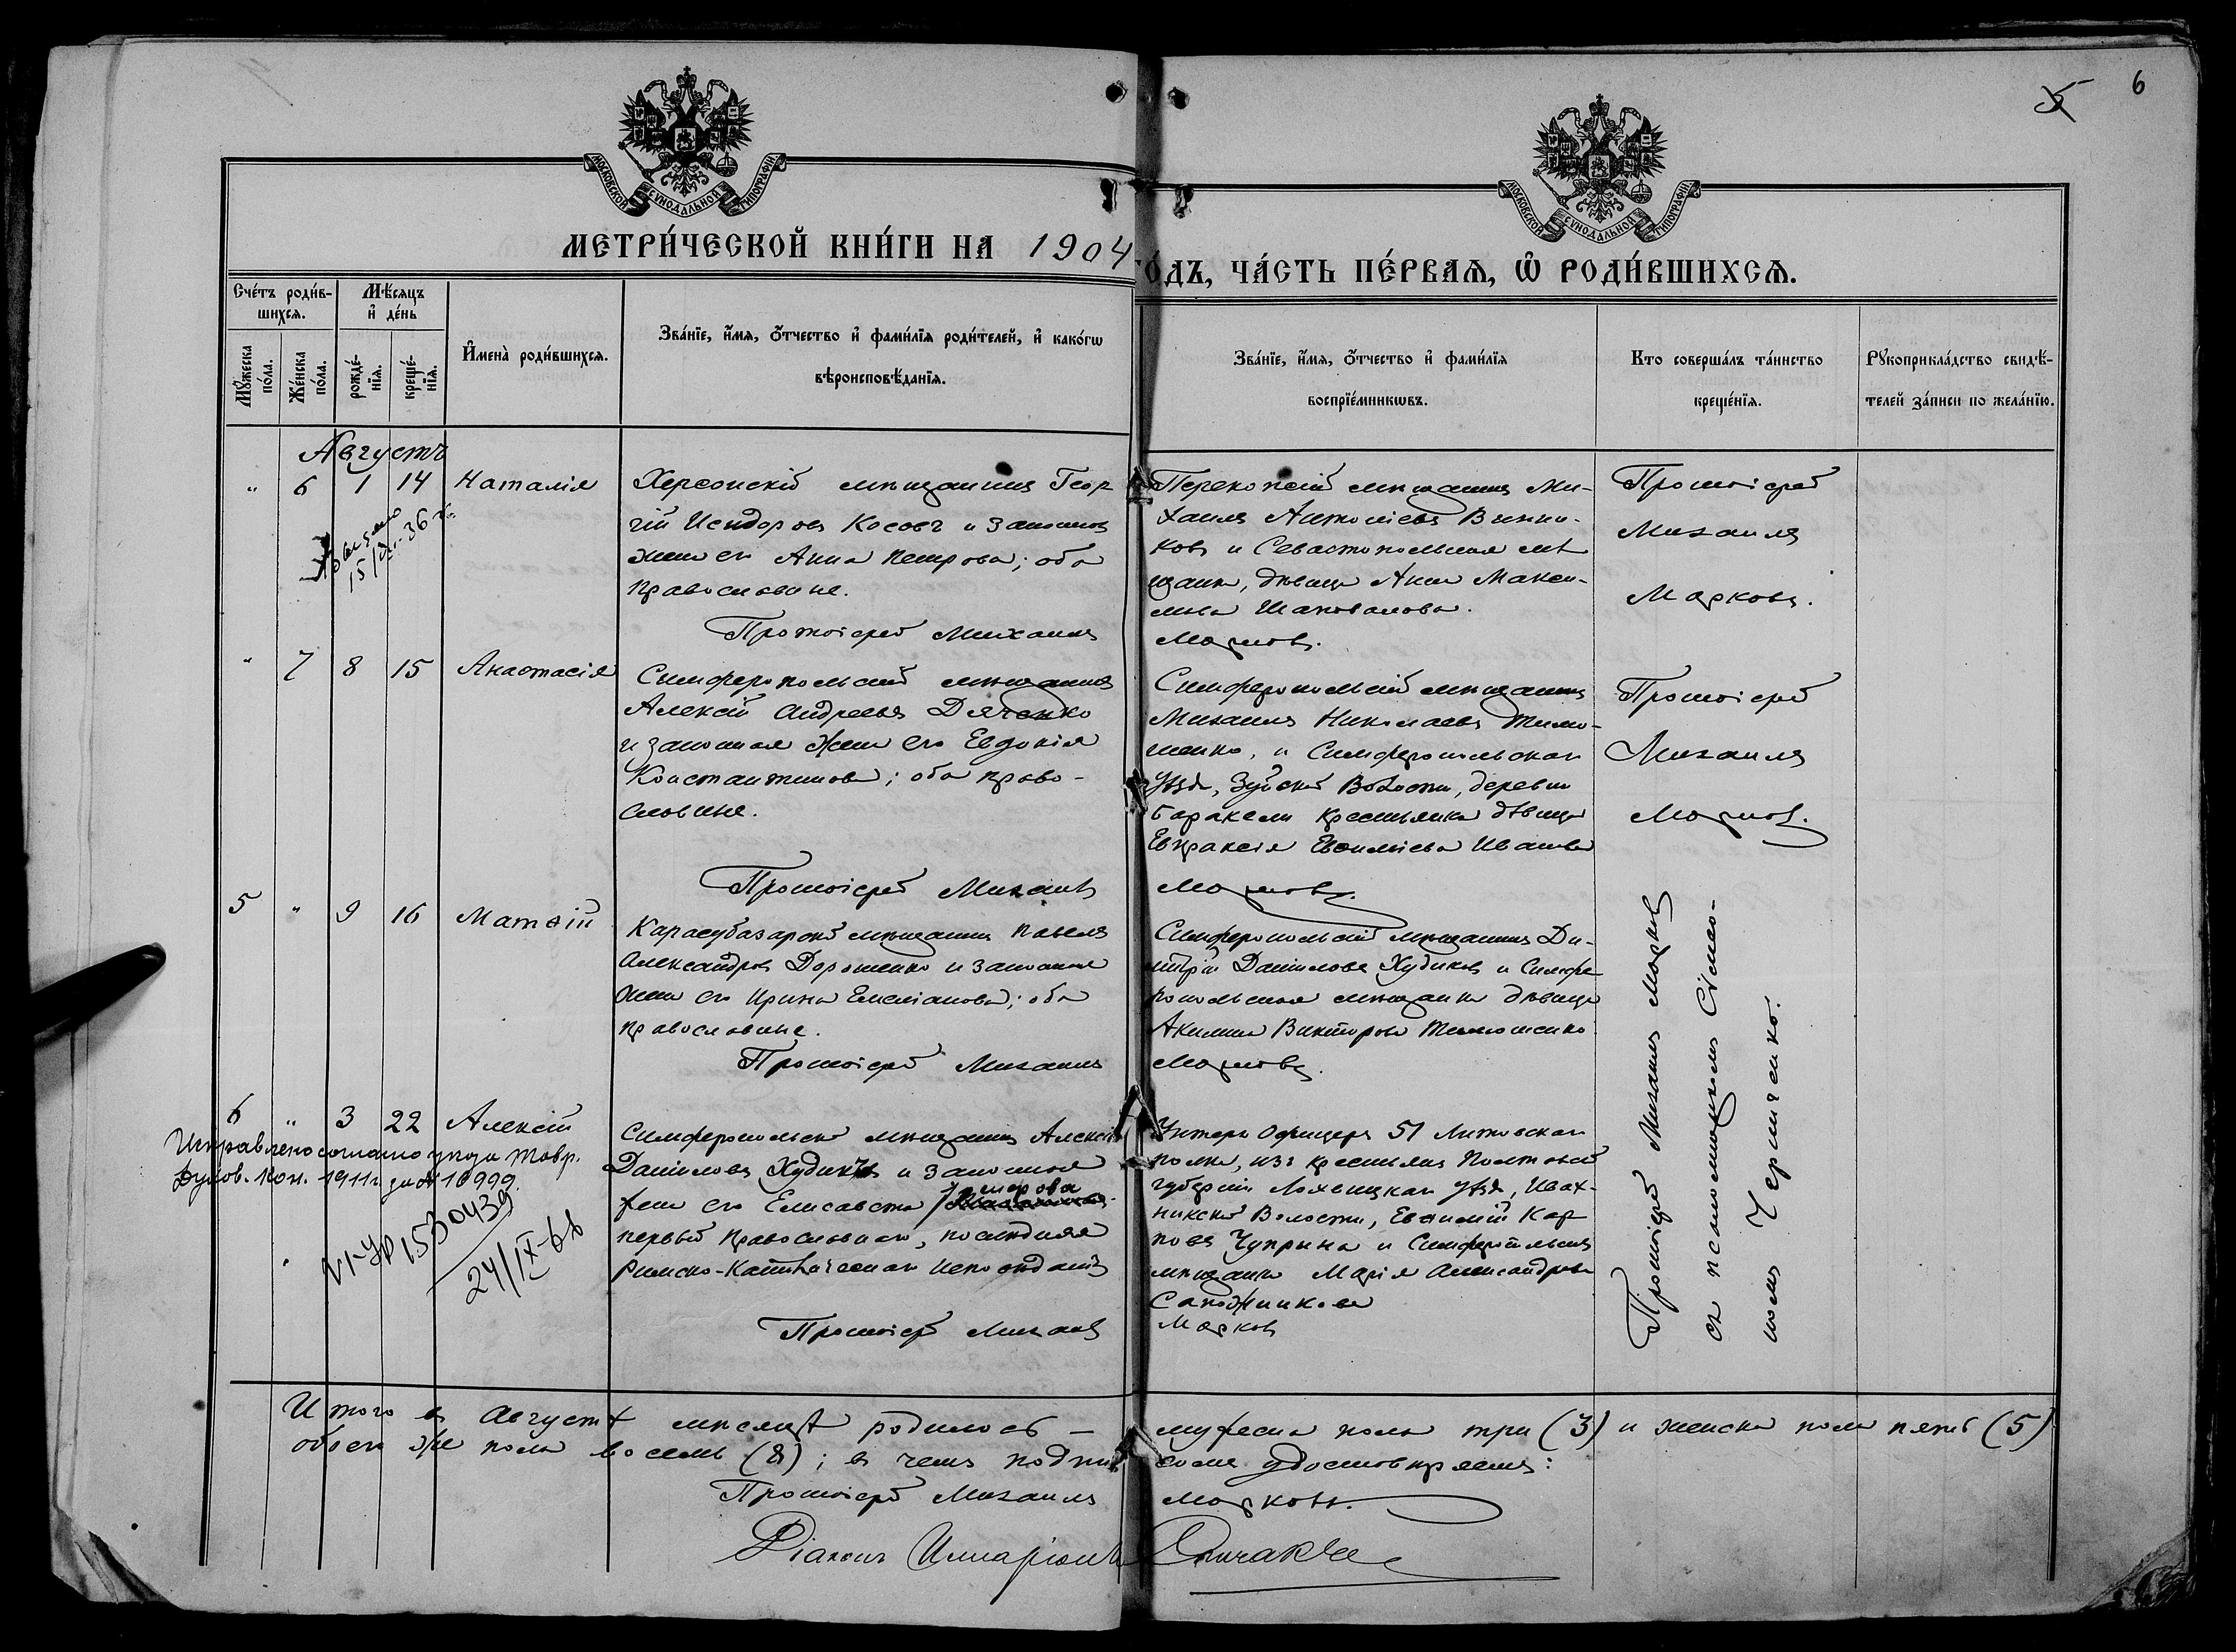 6
5
МОСКОВСКОЙ СѴНОДАЛЬНОЙ ТИПОГРАФІИ
МОСКОВСКОЙ СѴНОДАЛЬНОЙ ТИПОГРАФІИ
МЕТРИ́ЧЕСКОЙ КНИ́ГИ НА 1904
ГО́ДЪ, ЧА́СТЬ ПЕ́РВАЯ, Ѽ РОДИ́ВШИХСЯ.
Сче́тъ роди́в-
шихся.
Мѣ́сяцъ
и҆ де́нь
Мꙋ́жеска
по́ла.
Же́нска
по́ла.
рожде́-
нїѧ.
креще́-
нїѧ.
И҆мена̀ роди́вшихсѧ.
Зва́нїе, и҆́мѧ, ѻ҆́тчество и҆ фами́лїѧ роди́телей, и҆ како́гѡ
вѣроисповѣ́данїѧ.
Зва́нїе, и҆́мѧ, ѻ҆́тчество и҆ фами́лїѧ
воспрїе́мникѡвъ.
Кто соверша́лъ та́инство
креще́нїѧ.
Рꙋкоприкла́дство свидѣ́-
телей за́писи по жела́нїю.
Августъ
" 6 1 14 Наталія
Херсонскій мѣщанинъ Геор
гій Исидоровъ Косовъ и законная
жена его Анна Петрова; оба
православные.
Протоіерей Михаилъ
Перекопскій мѣщанинъ Ми-
хаилъ Антоніевъ Винни-
ковъ и Севастопольская мѣ
щанка, дѣвица Анна Макси-
мова Шаповалова.
Марковъ.
Протоіерей
Михаилъ
Марковъ.
15/XI-36 г.
" 7 8 15 Анастасія
Симферопольскій мѣщанинъ
Алексій Андреевъ Дяченко
и законная жена его Евдокія
Константинова; оба право-
славные.
Протоіерей Михаилъ
Симферопольскій мѣщанинъ
Михаилъ Николаевъ Тимо-
шенко, и Симферопольскаго
уѣзда, Зуйской Волости, деревни
крестьянка дѣвица
Евпраксія Иванова
Марковъ.
Протоіерей
Михаилъ
Марковъ.
5 " 9 16 Матѳій
Карасубазарскій мѣщанинъ Павелъ
Александровъ Дорошенко и законная
жена его Ирина Емеліанова; оба
православные.
Протоіерей Михаилъ
Симферопольскій мѣщанинъ Ди-
митрій Даниловъ Худиковъ и Симфе-
ропольская мѣщанка дѣвица
Акилина Викторова Тимошенко
Марковъ.
6 " 3 22 Алексій
Исправлено согласно указа Тавр.
Духов. Кон. 1911 г. за № 10999.
VI-УР 1530439
24/IX-68
Симферопольскій мѣщанинъ Алексій
Даниловъ Худиковъ и законная
жена его Елисавета
первый православнаго, послѣдняя
Римско-Католическаго исповѣданія
Протоіерей Михаилъ
Унтеръ Офицеръ 51 Литовскаго
полка, изъ крестьянъ Полтавской
губерніи Лохвицкаго уѣзда, Ивах-
никской Волости, Евѳимій Кар-
повъ Чуприна и Симферопольская
мѣщанка Марія Александрова
Сапожникова
Марковъ
Протоіерей Михаилъ Марковъ
съ псаломщикомъ
Черниченко.
Итого въ Августѣ мѣсяцѣ родилось — мужеска пола три (3) и женска пола пять (5)
обоего же пола восемь (8); въ чемъ подписомъ удостовѣряемъ:
Протоіерей Михаилъ Марковъ.
Діаконъ Иларіонъ